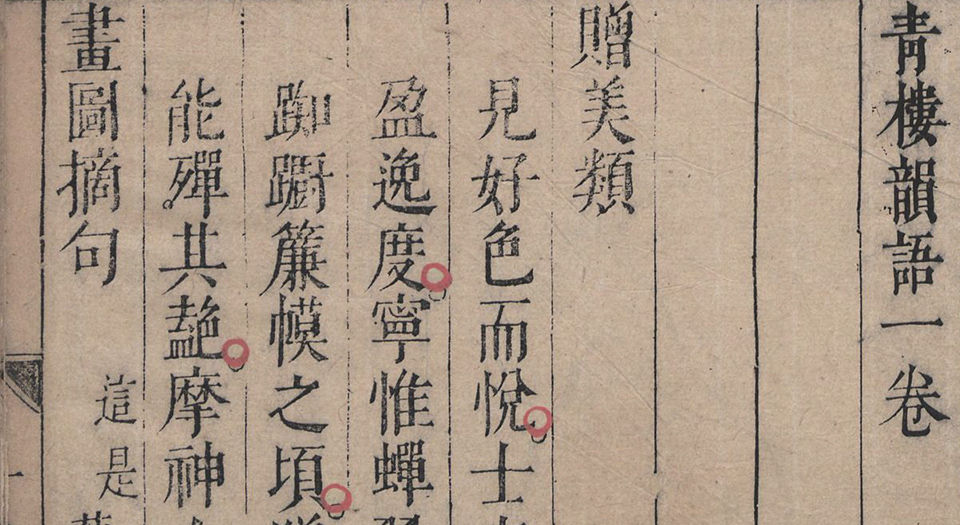 青樓韻語一卷
贈美類
見好色而悅士
盈逸度寧惟蟬
踟躕簾幙之頃
能殫其艶摩神
畫圖摘句 這是